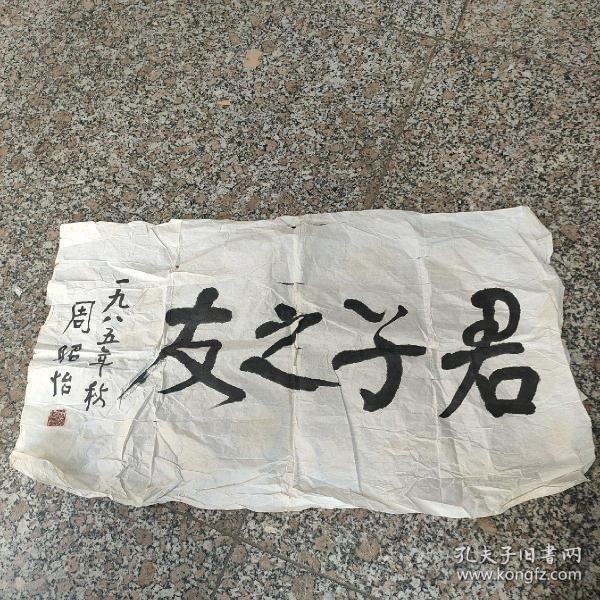 君子之友
一九八五年秋
周昭怡
孔夫子旧書网
www.kongfz.com